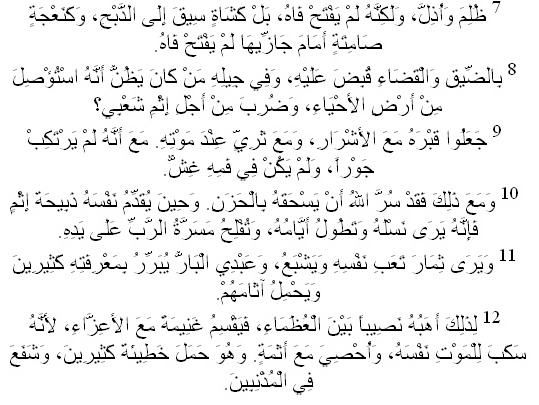 7 ظُلِمَ وَأُذِلَّ، وَلَكِنَّهُ لَمْ يَفْتَحْ فَاهُ، بَلْ كَشَاةٍ سِيقَ إِلَى الذَّبْحِ، وَكَنَعْجَةٍ
صَامِتَةٍ أَمَامَ جَازِّيهَا لَمْ يَفْتَحْ فَاهُ.
8 بِالضِّيقِ وَالْقَضَاءِ قُبِضَ عَلَيْهِ، وَفِي جِيلِهِ مَنْ كَانَ يَظُنُّ أَنَّهُ اسْتُؤْصِلَ
مِنْ أَرْضِ الأَحْيَاءِ، وَضُرِبَ مِنْ أَجْلِ إِثْمِ شَعْبِي؟
9 جَعَلُوا قَبْرَهُ مَعَ الأَشْرَارِ، وَمَعَ ثَرِيٍّ عِنْدَ مَوْتِهِ. مَعَ أَنَّهُ لَمْ يَرْتَكِبْ
جَوْراً، وَلَمْ يَكُنْ فِي فَمِهِ غِشٌّ.
10 وَمَعَ ذَلِكَ فَقَدْ سُرَّ اللهُ أَنْ يَسْحَقَهُ بِالْحَزَنِ. وَحِينَ يُقَدِّمُ نَفْسَهُ ذَبِيحَةَ إِثْمٍ
فَإِنَّهُ يَرَى نَسْلَهُ وَتَطُولُ أَيَّامُهُ، وَتُفْلِحُ مَسَرَّةُ الرَّبِّ عَلَى يَدِهِ.
11 وَيَرَى ثِمَارَ تَعَبِ نَفْسِهِ وَيَشْبَعُ، وَعَبْدِي الْبَارُّ يُبَرِّرُ بِمَعْرِفَتِهِ كَثِيرِينَ
وَيَحْمِلُ آثَامَهُمْ.
12 لِذَلِكَ أَهَبُهُ نَصِيباً بَيْنَ الْعُظَمَاءِ، فَيَقْسِمُ غَنِيمَةً مَعَ الأَعِزَّاءِ، لأَنَّهُ
سَكَبَ لِلْمَوْتِ نَفْسَهُ، وَأُحْصِيَ مَعَ أَثَمَةٍ. وَهُوَ حَمَلَ خَطِيئَةَ كَثِيرِينَ، وَشَفَعَ
فِي الْمُذْنِبِينَ.